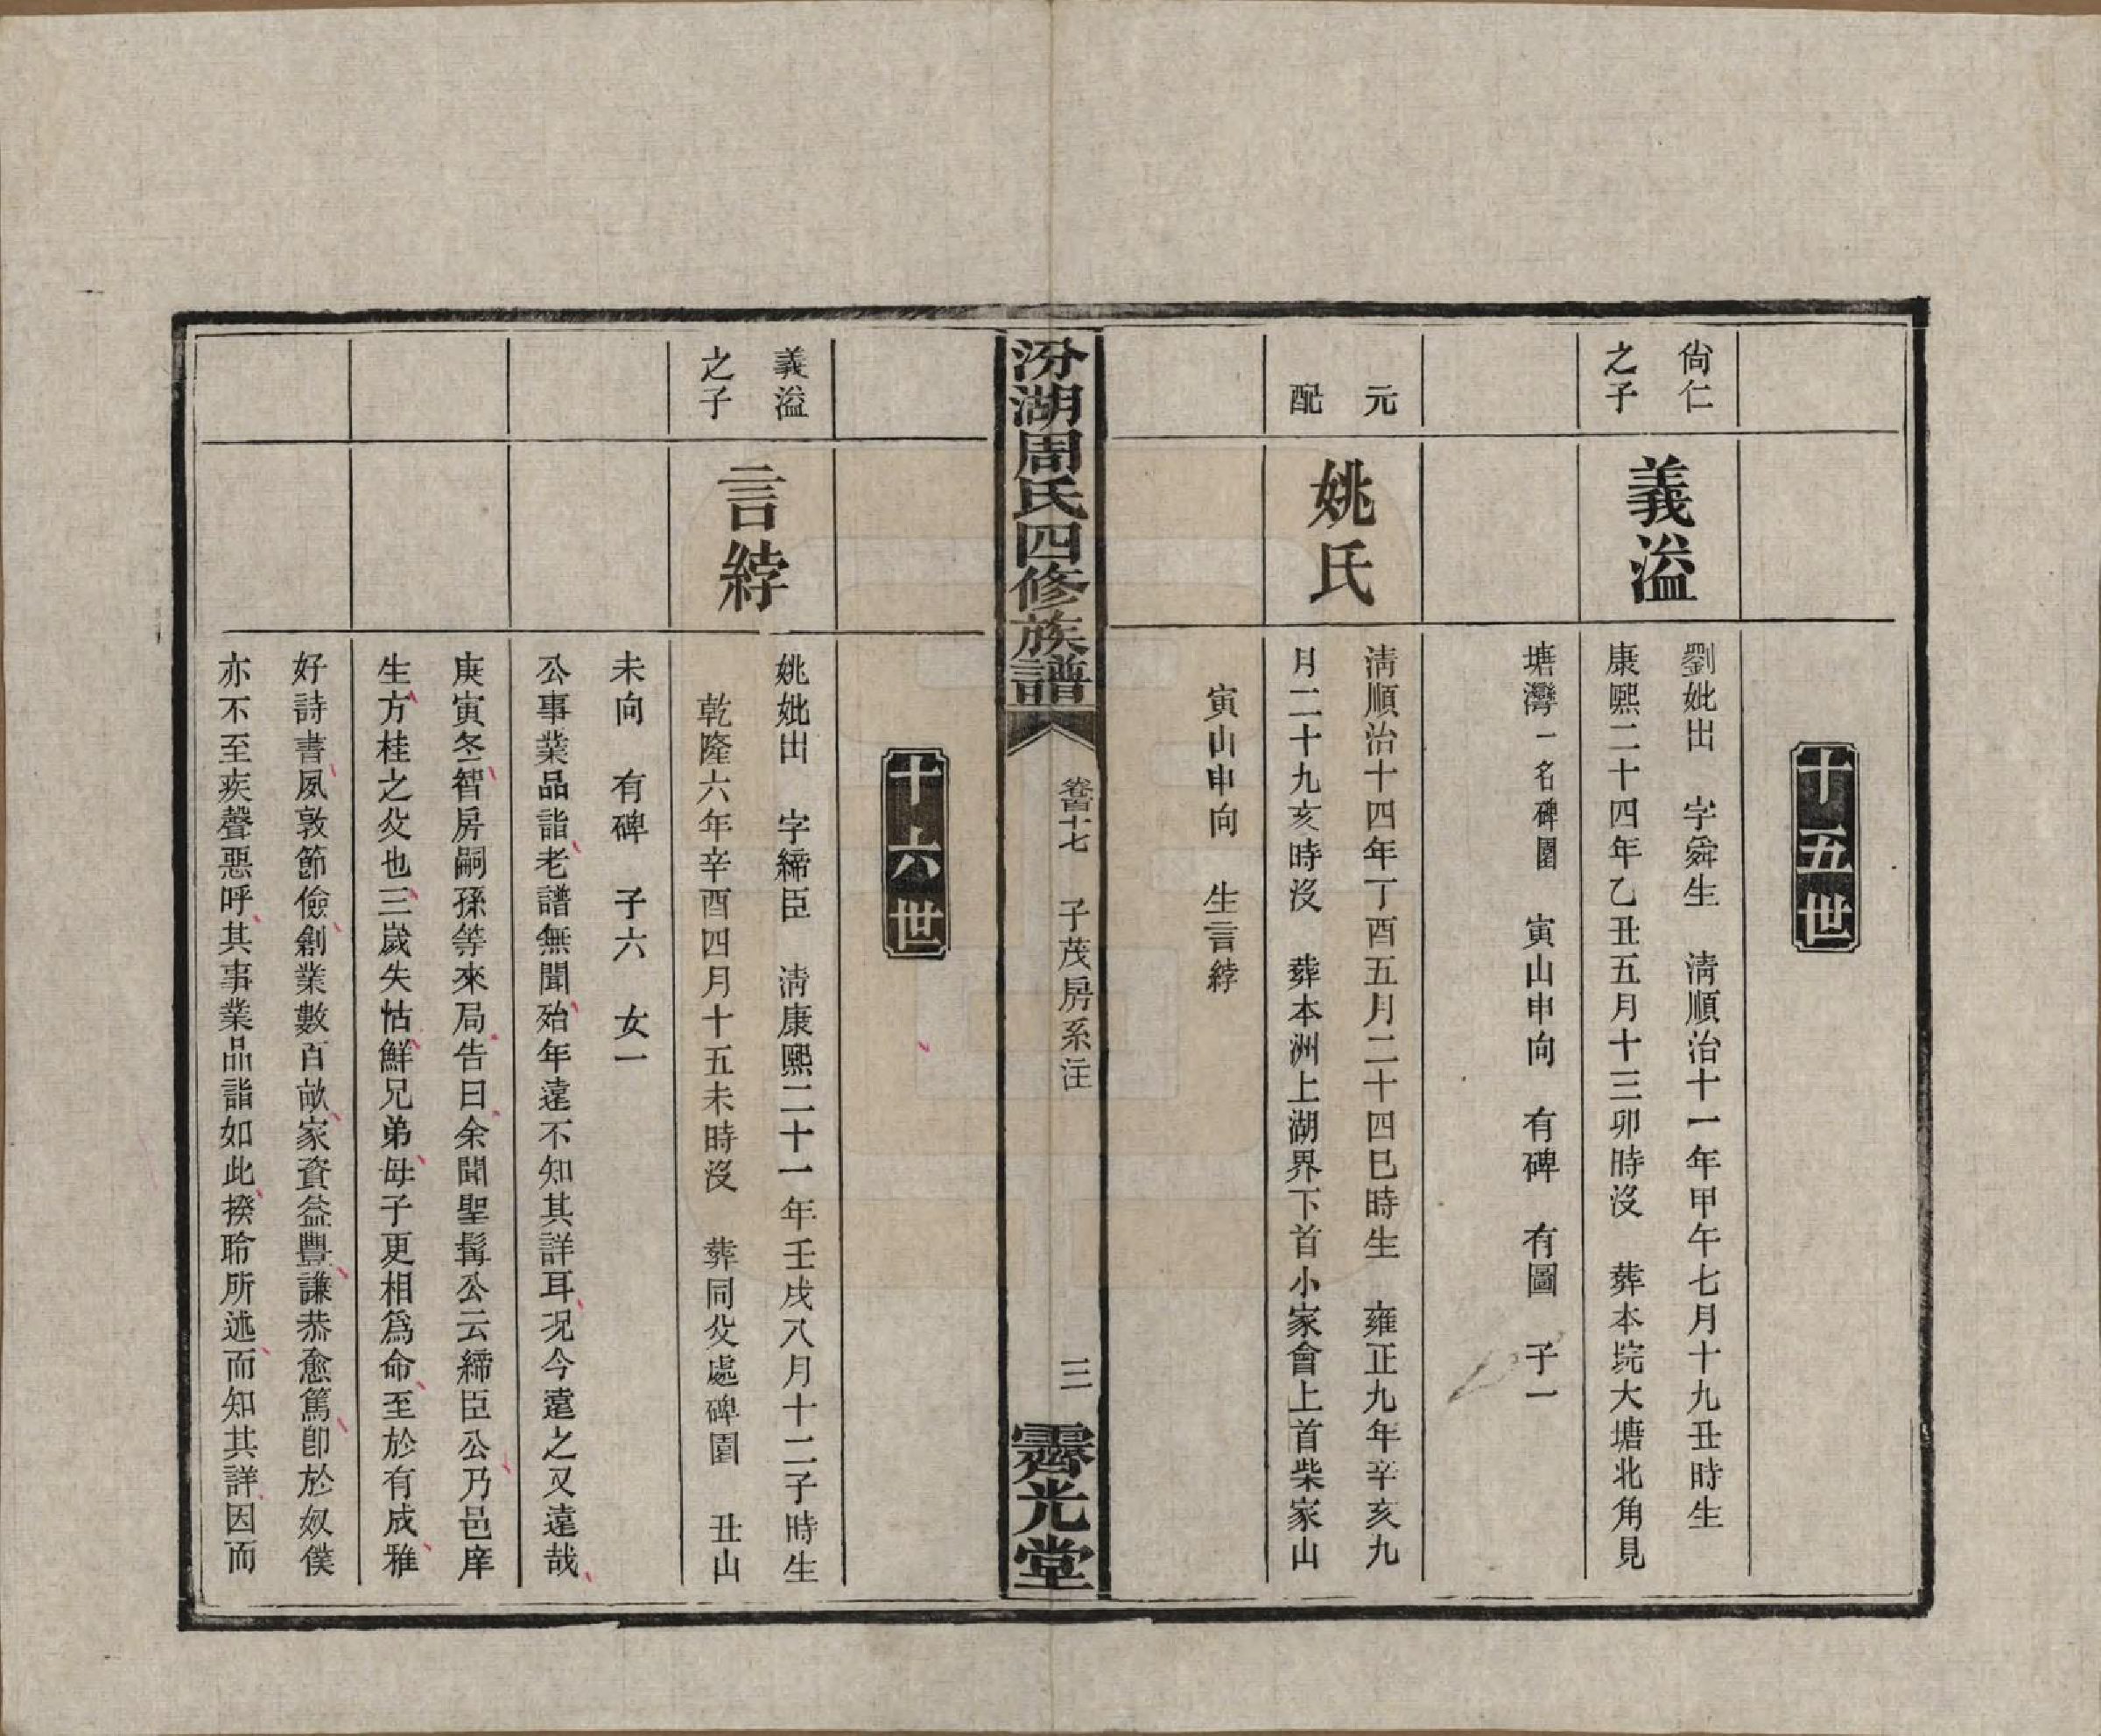 十五世
尙仁
之子
義溢
劉妣出　字舜生　淸順治十一年甲午七月十九丑時生
康熙二十四年乙丑五月十三卯時沒　葬本垸大塘北角見
塘灣一名碑圍　寅山申向　有碑　有圖　子一
元
配
姚氏
淸順治十四年丁酉五月二十四巳時生　雍正九年辛亥九
月二十九亥時沒　葬本洲上湖界下首小家會上首柴家山
寅山申向　生言綍
汾湖周氏四修族譜
卷首十七　子茂房系注
三
霽光堂
十六世
義溢
之子
言綍
姚妣出　字締臣　淸康熙二十一年壬戌八月十二子時生
乾隆六年辛酉四月十五未時沒　葬同父處碑圍　丑山
未向　有碑　子六　女一
公事業品詣老譜無聞殆年遠不知其詳耳况今遠之又遠哉
庚寅冬智房嗣孫等來局告曰余聞聖髯公云締臣公乃邑庠
生方桂之父也三歲失怙鮮兄弟母子更相爲命至於有成雅
好詩書夙敦節儉創業數百畝家資益豐謙恭愈篤卽於奴僕
亦不至疾聲惡呼其事業品詣如此揆聆所述而知其詳因而